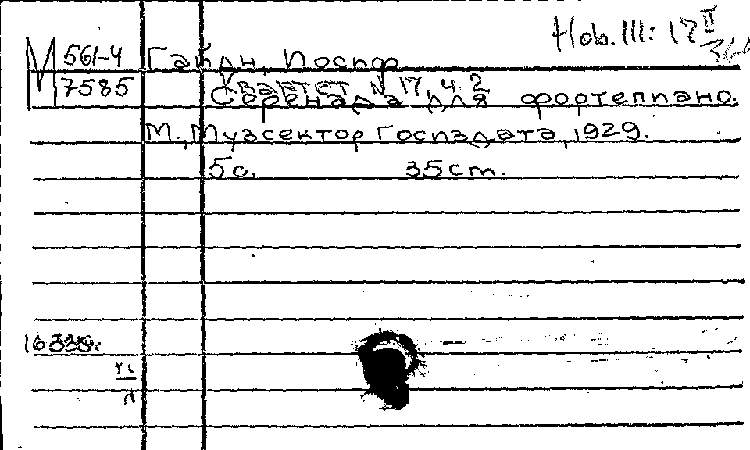 Hob. III: 17 II
М 561-4 Гайдн, Иосиф
7585 Квартет № 17, ч. 2
Серенада для фортепиано.
М., Музсектор Госиздата, 1929.
5 с. 35 cm.